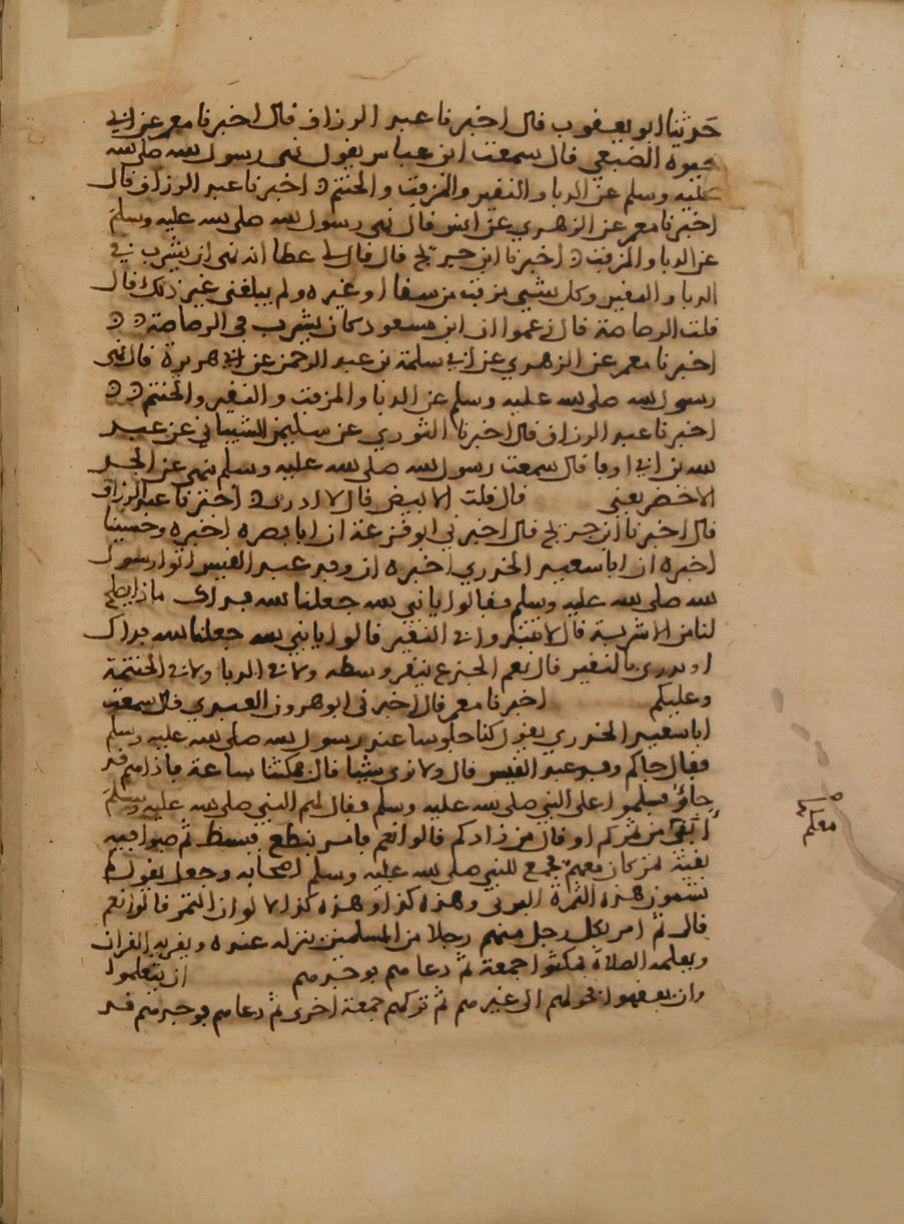 حدثنا ابو يعقوب قال اخبرنا عبد الرزاق قال اخبرنا معمر عن ابي
جمرة الضبعي قال سمعت ابن عباس يقول نهى رسول الله صلى الله
عليه وسلم عن الدبا والنقير والمزفت والحنتم اخبرنا عبد الرزاق قال
اخبرنا معمر عن الزهري عن انس قال نهى رسول الله صلى الله عليه وسلم
عن الدبا والمزفت اخبرنا ابن جريج قال قال لي عطا انه نهى ان يشرب في
الدبا والنقير وكل شيي مزفت من سقا او غيره ولم يبلغني غير ذلك قال
قلت الرصاصة قال زعموا ان ابن مسعود كان يشرب في الرصاصة
اخبرنا معمر عن الزهري عن ابي سلمة بن عبد الرحمن عن ابي هريرة قال نهى
رسول الله صلى الله عليه وسلم عن الدبا والمزفت والنقير والحنتم
اخبرنا عبد الرزاق قال اخبرنا الثوري عن سليمن الشيباني عن عبد
الله بن ابي اوفا قال سمعت رسول الله صلى الله عليه وسلم ينهى عن الجر
الاخضر يعني قال قلت الابيض قال لا ادري اخبرنا عبد الرزاق
قال اخبرنا ابن جريج قال اخبرني ابو قزعة ان ابا نصره اخبره وحسينا
اخبره ان ابا سعيد الخدري اخبره ان وفد عبد القيس اتوا رسول
الله صلى الله عليه وسلم فقالوا يا نبي الله جعلنا الله فداك ماذا يصلح
لنا من الاشربة قال لا تنتبذوا في النقير قالوا يا نبي الله جعلنا الله فداك
او تدري ما النقير قال نعم الجذع ينقر وسطه ولا في الدبا ولا في الحنتمة
وعليكم اخبرنا معمر قال اخبرني ابو هرون العبدي قال سمعت
ابا سعيد الخدري يقول كنا جلوسا عند رسول الله صلى الله عليه وسلم
فقال جاكم وفد عبد القيس قال ولا نرى شيا قال فمكثنا ساعة فاذا هم قد
جاؤ فسلموا على النبي صلى الله عليه وسلم فقال لهم النبي صلى الله عليه وسلم
ابقي من تمركم او قال من زادكم قالوا نعم فامر بنطع فبسط ثم صبوا فيه
بقية تمر كان معهم فجمع النبي صلى الله عليه وسلم اصحابه وجعل يقول لهم
تسمون هذه التمرة البرني وهذه كذا وهذه كذا لالوان التمر قالوا نعم
قال ثم امر بكل رجل منهم رجلا من المسلمين ينزله عنده ويقريه القران
ويعلمه الصلاة فمكثوا جمعة ثم دعاهم فوجدهم ان يتعلموا
وان يفقهوا فحولهم الى غيرهم ثم تركهم جمعة اخرى ثم دعاهم فوجدهم قد
معكم